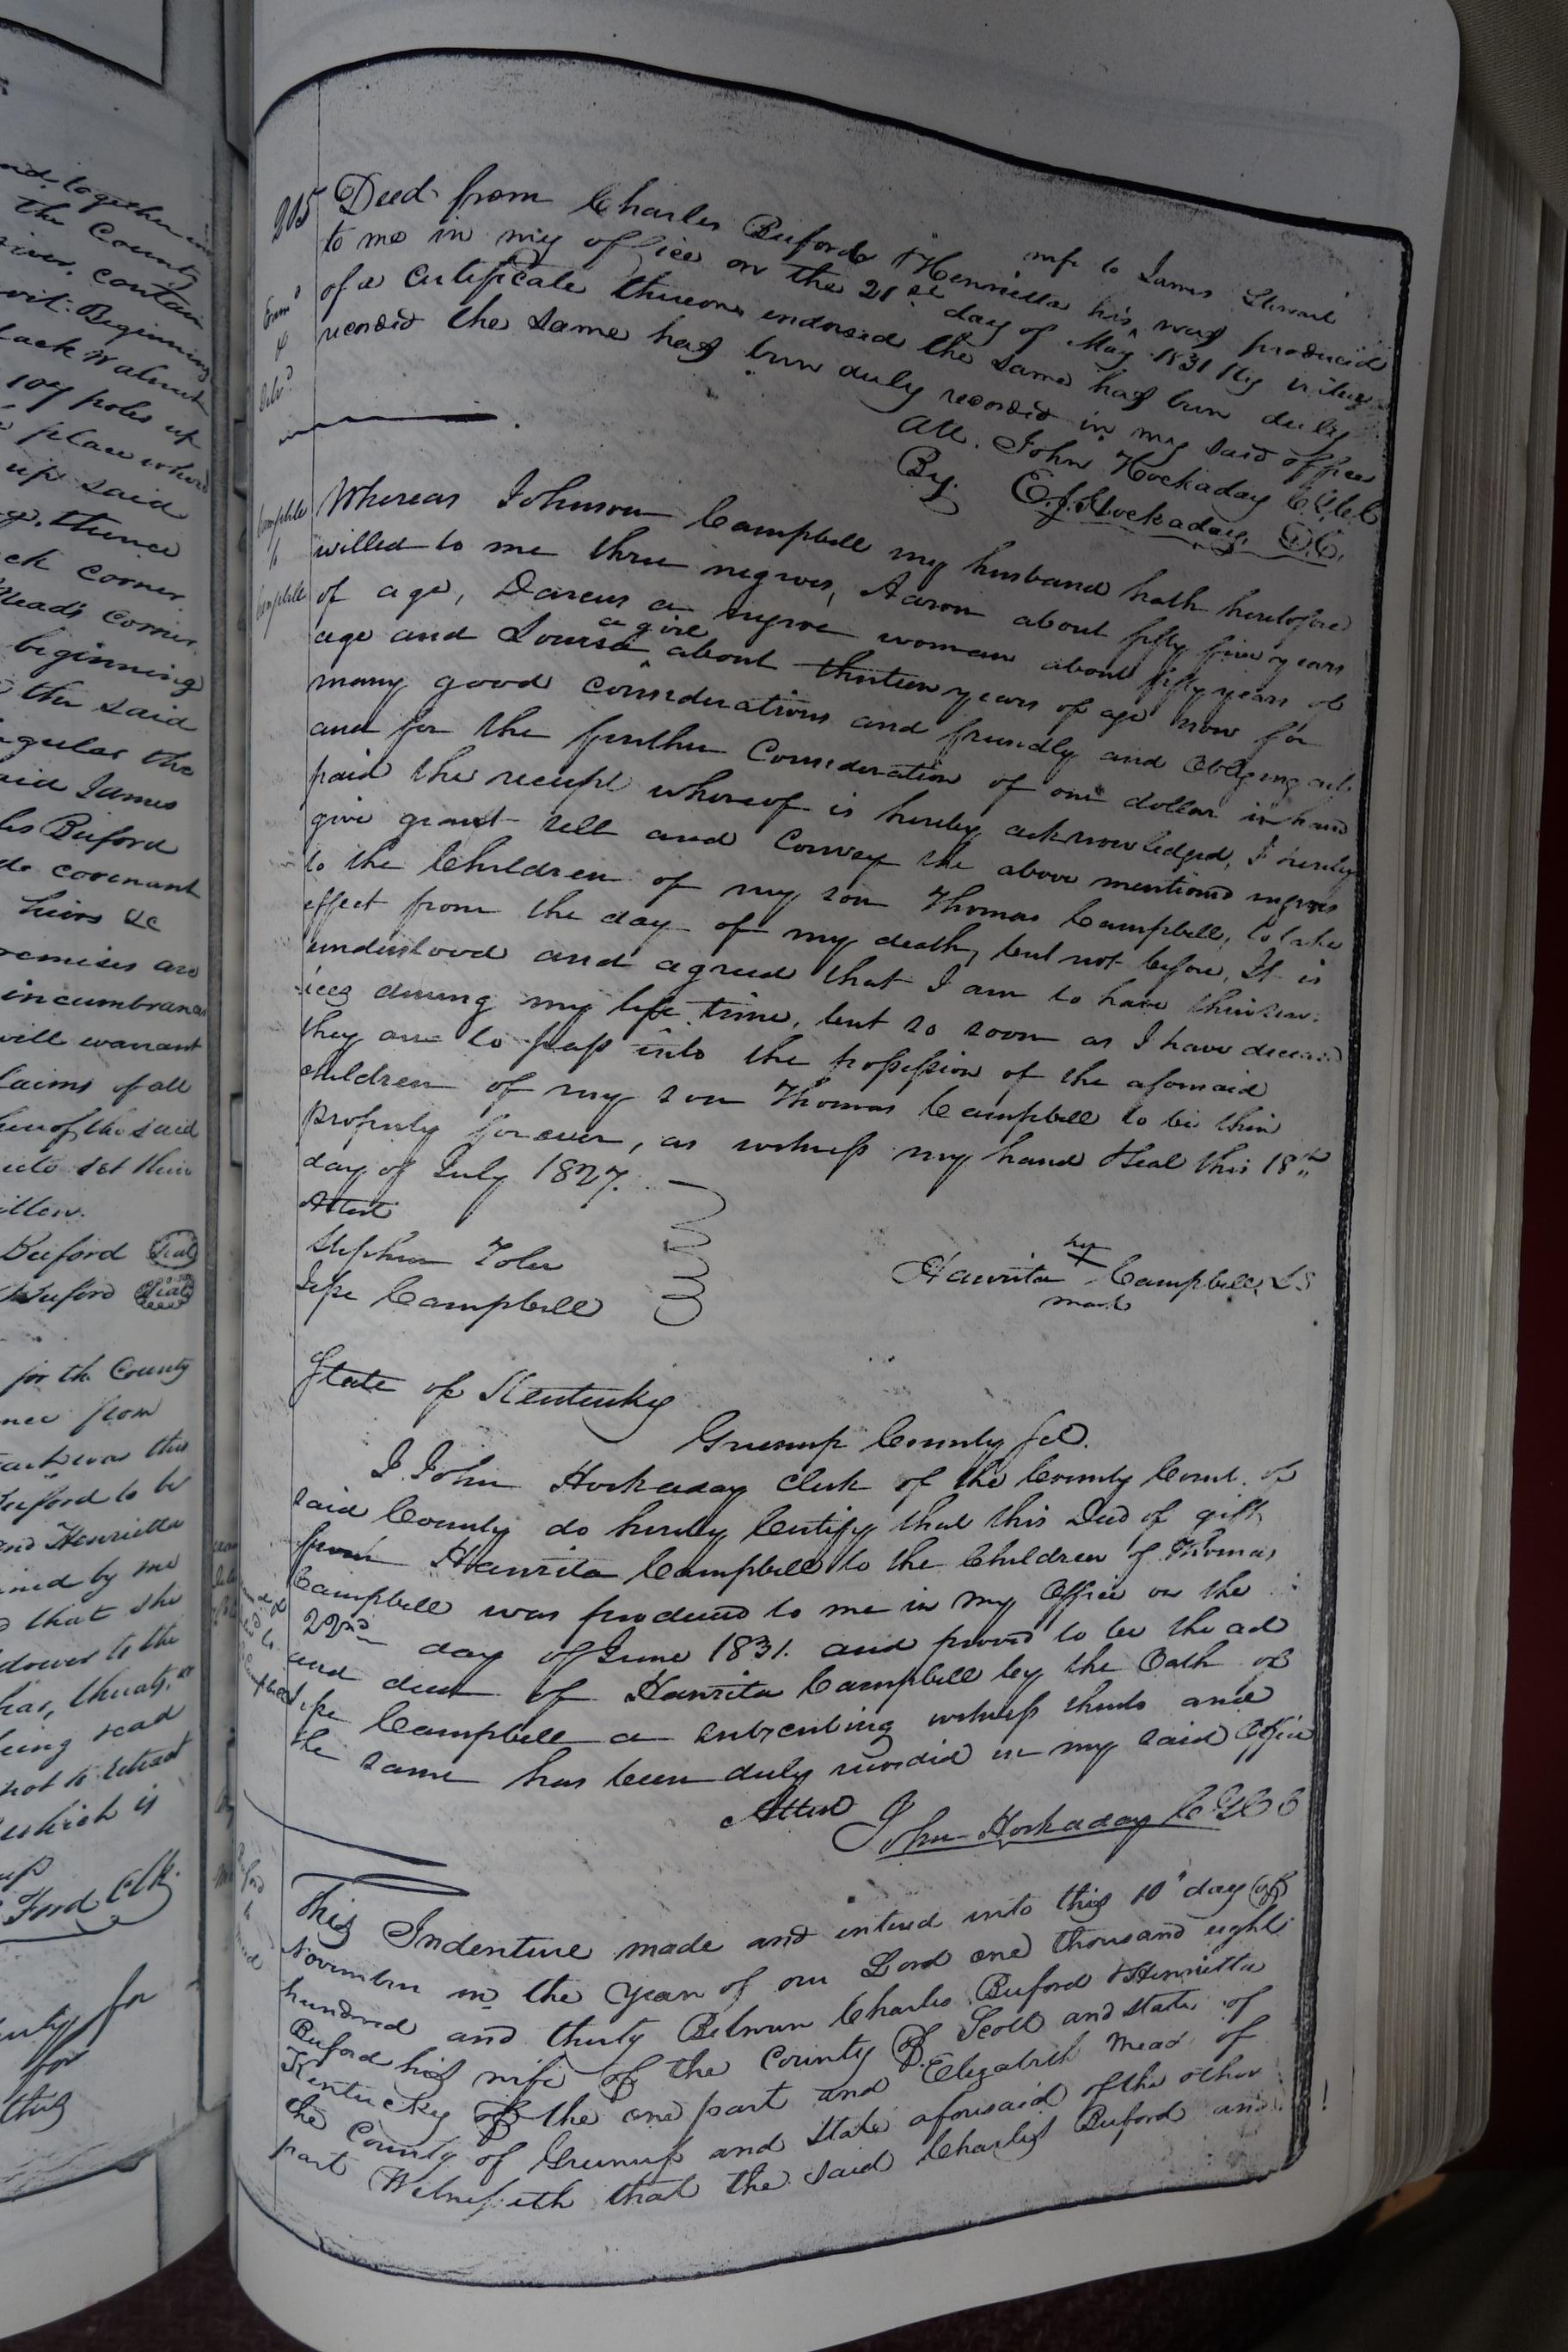 and together in
the County
River, contain
wit: Beginning
Black Walnut
107 poles up
place where
up said
thence
corner
Mead's corner
beginning
the said
the
said James
Buford
do covenant
heirs &c
premises are
incumbrances
will warrant
claims of all
of the said
set their
written.
Buford Seal
Buford Seal
for the County
from
was this
Buford to be
and Henrietta
by me
that she
dower to the
has, threats, or
being read
not to retract
which is
Ford Clk.
for
for
205
Exam'd
&
Deliv'd
Deed from Charles Buford & Henrietta his wife to James Stewart
was produced
to me in my office on the 21st day of May 1831 By virtue
of a Certificate thereon endorsed the same has been duly
recorded the same has been duly recorded in my said office
Att. John Hockaday C G C C
By. E. J. Hockaday, D.C.
Campbell
to
Campbell
Whereas Johnson Campbell my husband hath heretofore
willed to me three negroes, Aaron about fifty five years
of age, Darcus a negroe woman about fifty years of
age and Louisa a girl about thirteen years of age now for
many good considerations and friendly and obligeing acts
and for the further Consideration of one dollar in hand
paid the receipt whereof is hereby acknowledged, I hereby
give grant sell and Convey the above mentioned negroes
to the Children of my son Thomas Campbell, to take
effect from the day of my death, but not before, It is
understood and agreed that I am to have their serv-
ices during my life time, but so soon as I have deceased
they are to pass into the possession of the aforesaid
children of my son Thomas Campbell to be their
property forever, as witness my hand & seal this 18th
day of July 1827.
Attest
Stephen Toler
Jesse Campbell
Hanrita her X mark Campbell LS
State of Kentucky
Greenup County Sct.
I John Hockaday Clerk of the County Court of
said County do hereby Certify that this Deed of gift
from Hanrita Campbell to the Children of Thomas
Campbell was produced to me in my Office on the
22nd day of June 1831. and proved to be the act
and deed of Hanrita Campbell by the Oath of
Jesse Campbell a subscribing witness thereto and
the same has been duly recorded in my said Office
Attest John Hockaday C G C C
Buford
to
Mead
This Indenture made and entered into this 10" day of
November in the Year of our Lord one thousand eight
hundred and thirty Between Charles Buford & Henrietta
Buford his wife of the County of Scott and State of
Kentucky of the one part and Elizabeth Mead of
the County of Greenup and State aforesaid of the other
part Witnesseth that the said Charles Buford and